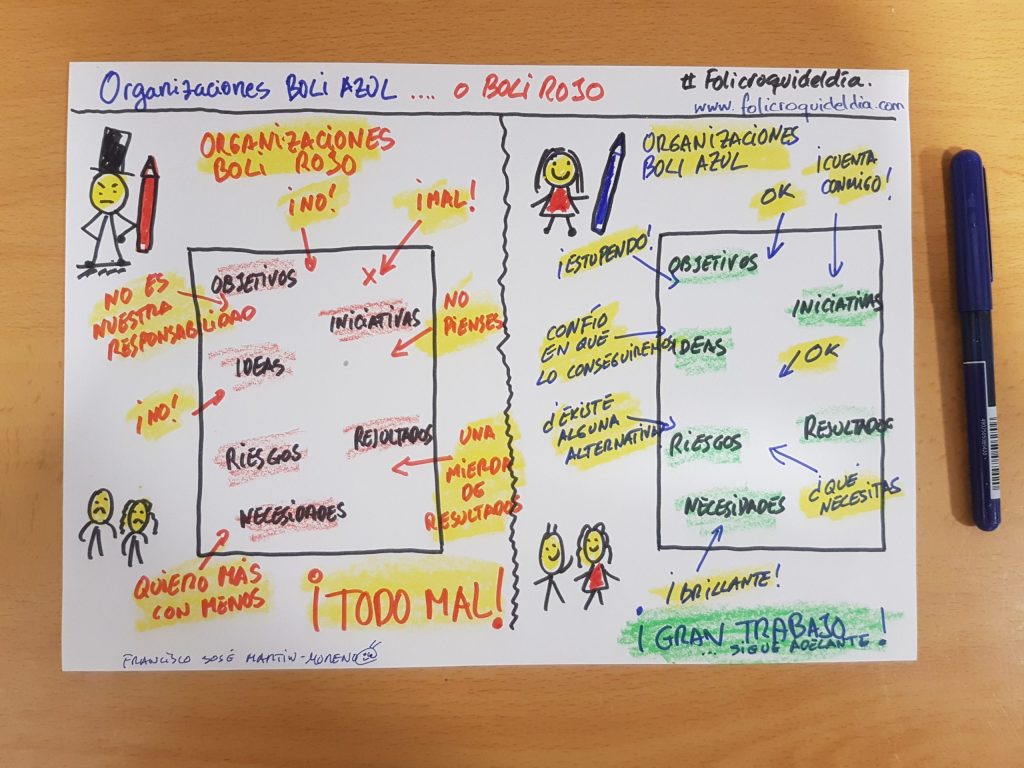 Organizaciones BOLI AZUL .... o BOLI ROJO
# Folicroquideldia.
www.folicroquideldia.com
ORGANIZACIONES
BOLI ROJO
¡NO!
¡MAL!
OBJETIVOS
X
NO ES
NUESTRA
RESPONSABILIDAD
INICIATIVAS
NO
PIENSES
IDEAS
¡NO!
RESULTADOS
RIESGOS
UNA
MIERDA
DE
RESULTADOS
NECESIDADES
QUIERO MÁS
CON MENOS
¡TODO MAL!
FRANCISCO JOSÉ MARTÍN-MORENO
ORGANIZACIONES
BOLI AZUL
OK
¡CUENTA
CONMIGO!
¡ESTUPENDO!
OBJETIVOS
INICIATIVAS
CONFÍO
EN QUE
LO CONSEGUIREMOS
IDEAS
OK
¿EXISTE
ALGUNA
ALTERNATIVA?
RESULTADOS
RIESGOS
¿QUÉ
NECESITAS
NECESIDADES
¡BRILLANTE!
¡GRAN TRABAJO
... SIGUE ADELANTE!